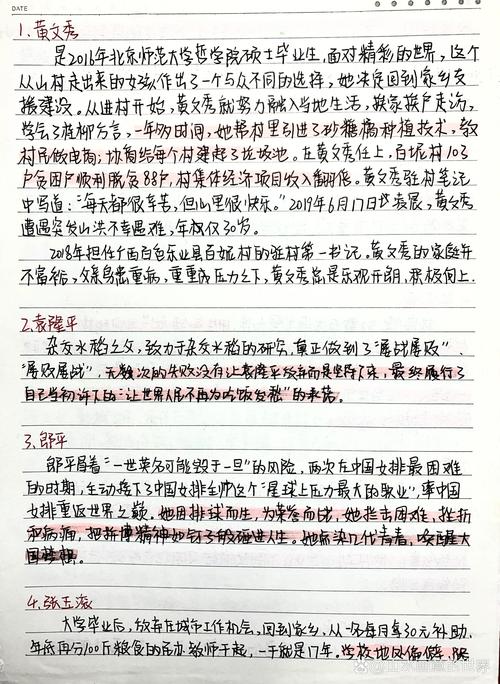 DATE
1.黄文秀
是2016年北京师范大学哲学院硕士毕业生,面对精彩的世界,这个
从山村走出来的女孩作出了一个与众不同的选择,她决定回到家乡支
援建设。从进村开始,黄文秀就努力融入当地生活,挨家挨户走访,
学会了桂柳方言,一年多时间,她帮村里引进了砂糖橘种植技术,教
村民做电商,协商给每个村建起了垃圾池。在黄文秀任上,百坭村103
户贫困户顺利脱贫88户,村集体经济项目收入翻倍。黄文秀驻村笔记
中写道:“每天都很辛苦,但心里很快乐。”2019年6月17日,黄文秀
遭遇突发山洪不幸遇难,年仅30岁。
2018年担任广西百色乐业县百坭村的驻村第一书记。黄文秀的家庭并
不富裕,父亲身患重病,重重压力之下,黄文秀总是乐观开朗,积极向上.
2.袁隆平
杂交水稻之父,致力于杂交水稻的研究,真正做到了“屡战屡败”、
“屡败屡战”,无数次的失败没有让袁隆平放弃而是坚持下来,最终履行了
自己当初许下的“让世界人民不再为吃饭发愁”的承诺。
3.郎平
郎平冒着“一世英名可能毁于一旦”的风险,两次在中国女排最困难
的时期,主动接下了中国女排主帅这个“星球上压力最大的职业”,率中国
女排重返世界之巅。她因排球而生,为荣誉而战,她拦击困难、挫折
和病痛,把拼搏精神如钉子般砸进人生。她感染几代青春,唤醒大
国
4.张玉滚
大学毕业后,放弃在城市工作机会,回到家乡,从一名每月拿30元补助、
年底再分100斤粮食的民办教师干起,一干就是17年。学校地处偏僻,路